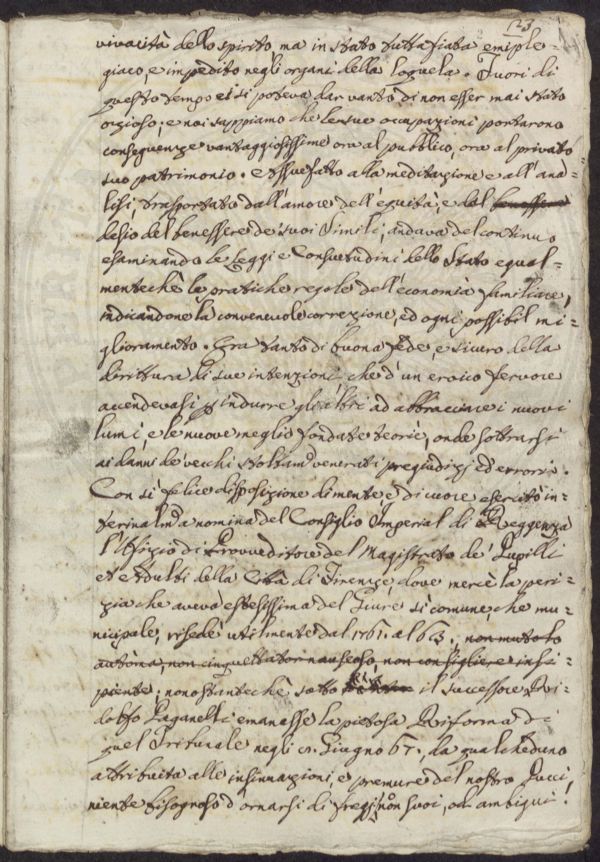 23
vivacità dello spirito ma in stato tutta fiata emiple-
giaco, e impedito negli organi della loquela. Fuori di
questo tempo ei si poteva dar vanto di non esser mai stato
ozioso; e noi sappiamo che le sue occupazioni portarono
conseguenze vantaggiosissime ora al pubblico, ora al privato
suo patrimonio. Assuefatto alla meditazione e all'ana-
lisi, trasportato dall'amore dell'equità, e dal benessere
desio del benessere de' suoi Simili, andava del continuo
esaminando le Leggi e Consuetudini dello Stato egual-
mentechè le pratiche regole dell'economia familiare,
indicandone la convenevole correzione, ed ogni possibil mi-
glioramento. Era tanto di buona fede, e sicuro della
dirittura di sue intenzioni, che d'un eroico fervore
accendevasi p indurre gli altri ad abbracciare i nuovi
lumi, e le nuove meglio fondate teorie, onde sottrarsi
ai danni de' vecchi stoltam.e venerati pregiudizj ed errori.
Con sì felice disposizione di mente, e di cuore esercitò in-
terinalm.e a nomina del Consiglio Imperial di Reggenza
l'Ofizio di Provveditore del Magistrato de' Pupilli
et Adulti della Città di Firenze, dove mercè la peri-
zia che aveva estesissima del Giure sì comune, che mu-
nicipale, risedè utilmente dal 1761. al 63., non mutolo
automa, non cinguettator nauseoso, non consigliere insi-
piente; nonostantechè sotto il successore Ri-
dolfo Paganelli emanasse la pietosa Riforma di
quel Tribunale negli Giugno 67., da qualcheduno
attribuita alle insinuazioni, e premure del nostro Pucci
niente bisognoso d'ornarsi di fregi non suoi, od ambigui.